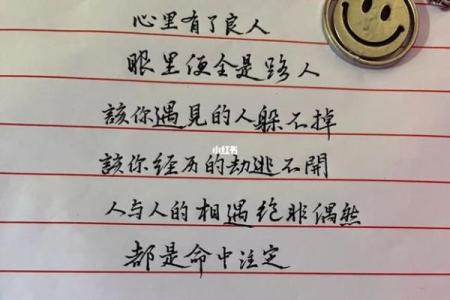 心里有了良人
眼里便全是路人
該你遇見的人躲不掉
該你经历的劫逃不開
小红书
人与人的相遇绝非偶然
都是命中注定